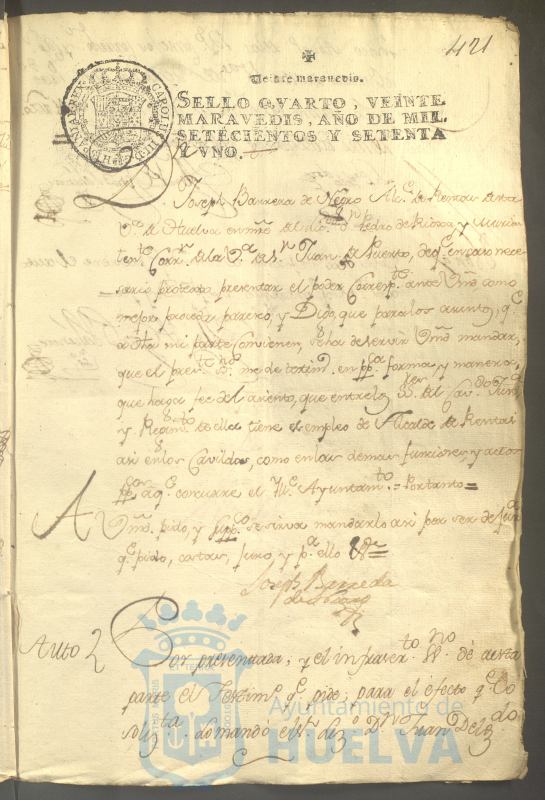 421
Veinte maravedis.
SELLO QVARTO, VEINTE
MARAVEDIS, AÑO DE MIL
SETECIENTOS Y SETENTA
Y VNO.
CAROLUS III D.G. HISPANIAR. REX
Joseph Barreda de Negro Alc.e de Rentas de esta
V.a de Huelva en nre. del lic.do D.n Pedro de
ten.te Corr.or de la V.a de S.n Juan de Puerto, de q.e en caso nece
sario protexto presentar el poder corresp.te ante Vmd como
mejor proceda parezco, y Digo, que para los asuntos, q.e
a dha mi parte convienen, se ha de servir Vmd mandar,
que el pres.te SS.no me de testim.o en pp.ca forma, y manera,
que haga fee del asiento, que entre los SS.res del Cav.do Just.a
y Regim.to de ella tiene el empleo de Alcalde de Rentas
asi en los Cavildos, como en las demas funciones, y actos
pp.cos a q.e concurre el Itt.e Ayuntam.to = Portanto =
A Vmd. pido, y supp.co se sirva mandarlo asi por ser de Just.a
q.e pido, costas, juro, y p.a ello &.a
Joseph Barreda
de Negro
Auto 2
Por presentada, y el infraescr.to SS.no dè a esta
parte el Testim.o q.e pide, para el efecto q.e lo
soliz.ta lo mandò el S.r Liz.do D.n Juan
Ayuntamiento de
HUELVA